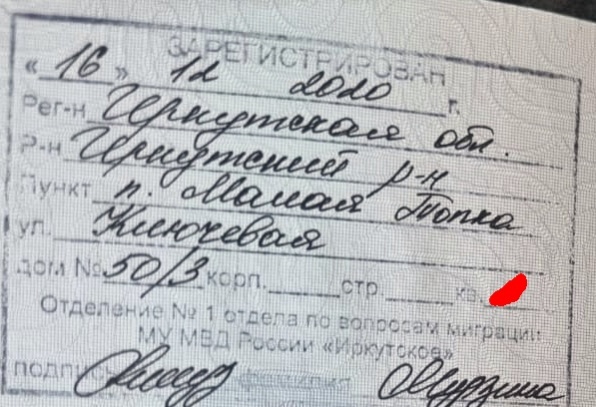 ЗАРЕГИСТРИРОВАН
«16» 12 2020 г.
Рег-н Иркутская обл.
Р-н Иркутский р-н
Пункт п. Малая Топка
ул. Ключевая
дом № 50/3 корп. стр. кв.
Отделение № 1 отдела по вопросам миграции
МУ МВД России «Иркутское»
подпись фамилия